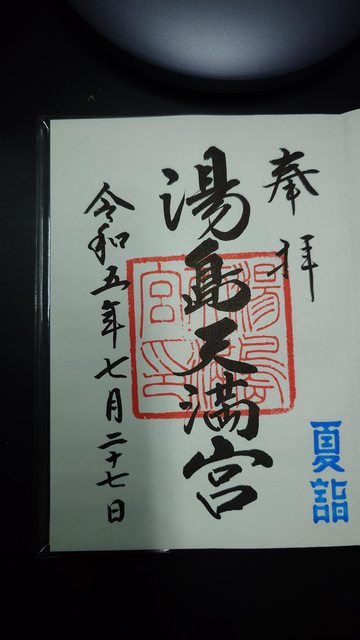 奉拝
湯島天満宮
令和五年七月二十七日
夏詣